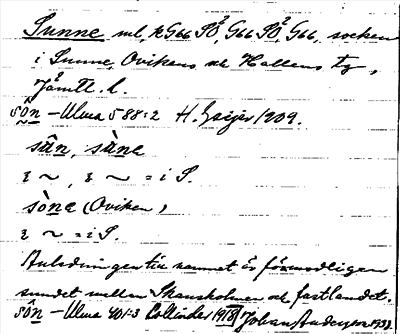 Sunne ml, k G66 SO, G66 SO, G66, socken
i Sunne, Ovikens och Hallens tg,
Jämtl. l.
sôn – Ulma 588:2 H. Geijer 1909.
sân, sàne
ɛ ~, ɛ ~ = i S.
sòne (Oviken)
ɛ ~ = i S.
Anledningen till namnet är förmodligen
sundet mellan Skansholmen och fastlandet.
sôn – Ulma 401:3 Collinder 1918 Johan Anderson 1932.